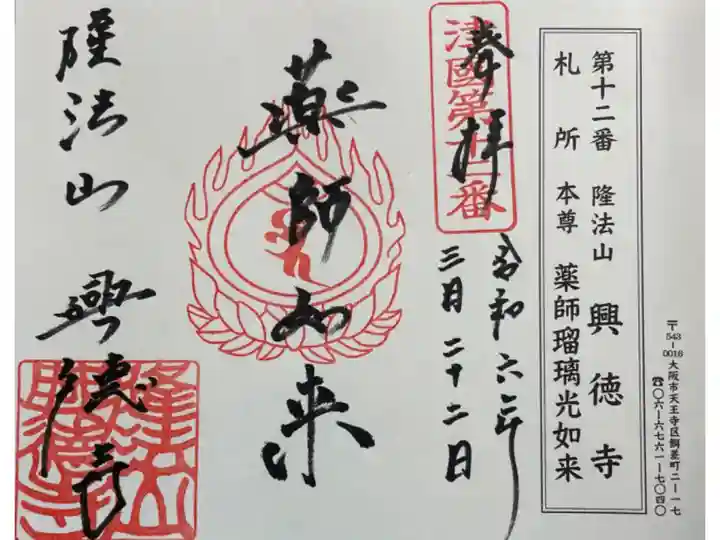 第十二番 隆法山 興徳寺
札所 本尊 薬師瑠璃光如来
〒543-0016 大阪市天王寺区餌差町二ー一七
☎〇六ー六七六一ー七〇四〇
奉拝
津國第十二番
令和六年
三月二十二日
薬師如来
隆法山 興徳寺
隆法山
興徳寺